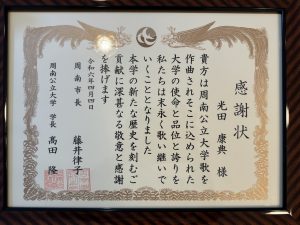 感謝状
光田 康典 様
貴方は周南公立大学歌を
作曲されそこに込められた
大学の使命と品位と誇りを
私たちは末永く歌い継いで
いくこととなりました
本学の新たな歴史を刻むご
貢献に深甚なる敬意と感謝
を捧げます
令和六年四月四日
周南市長 藤井律子
周南公立大学 学長 髙田 隆